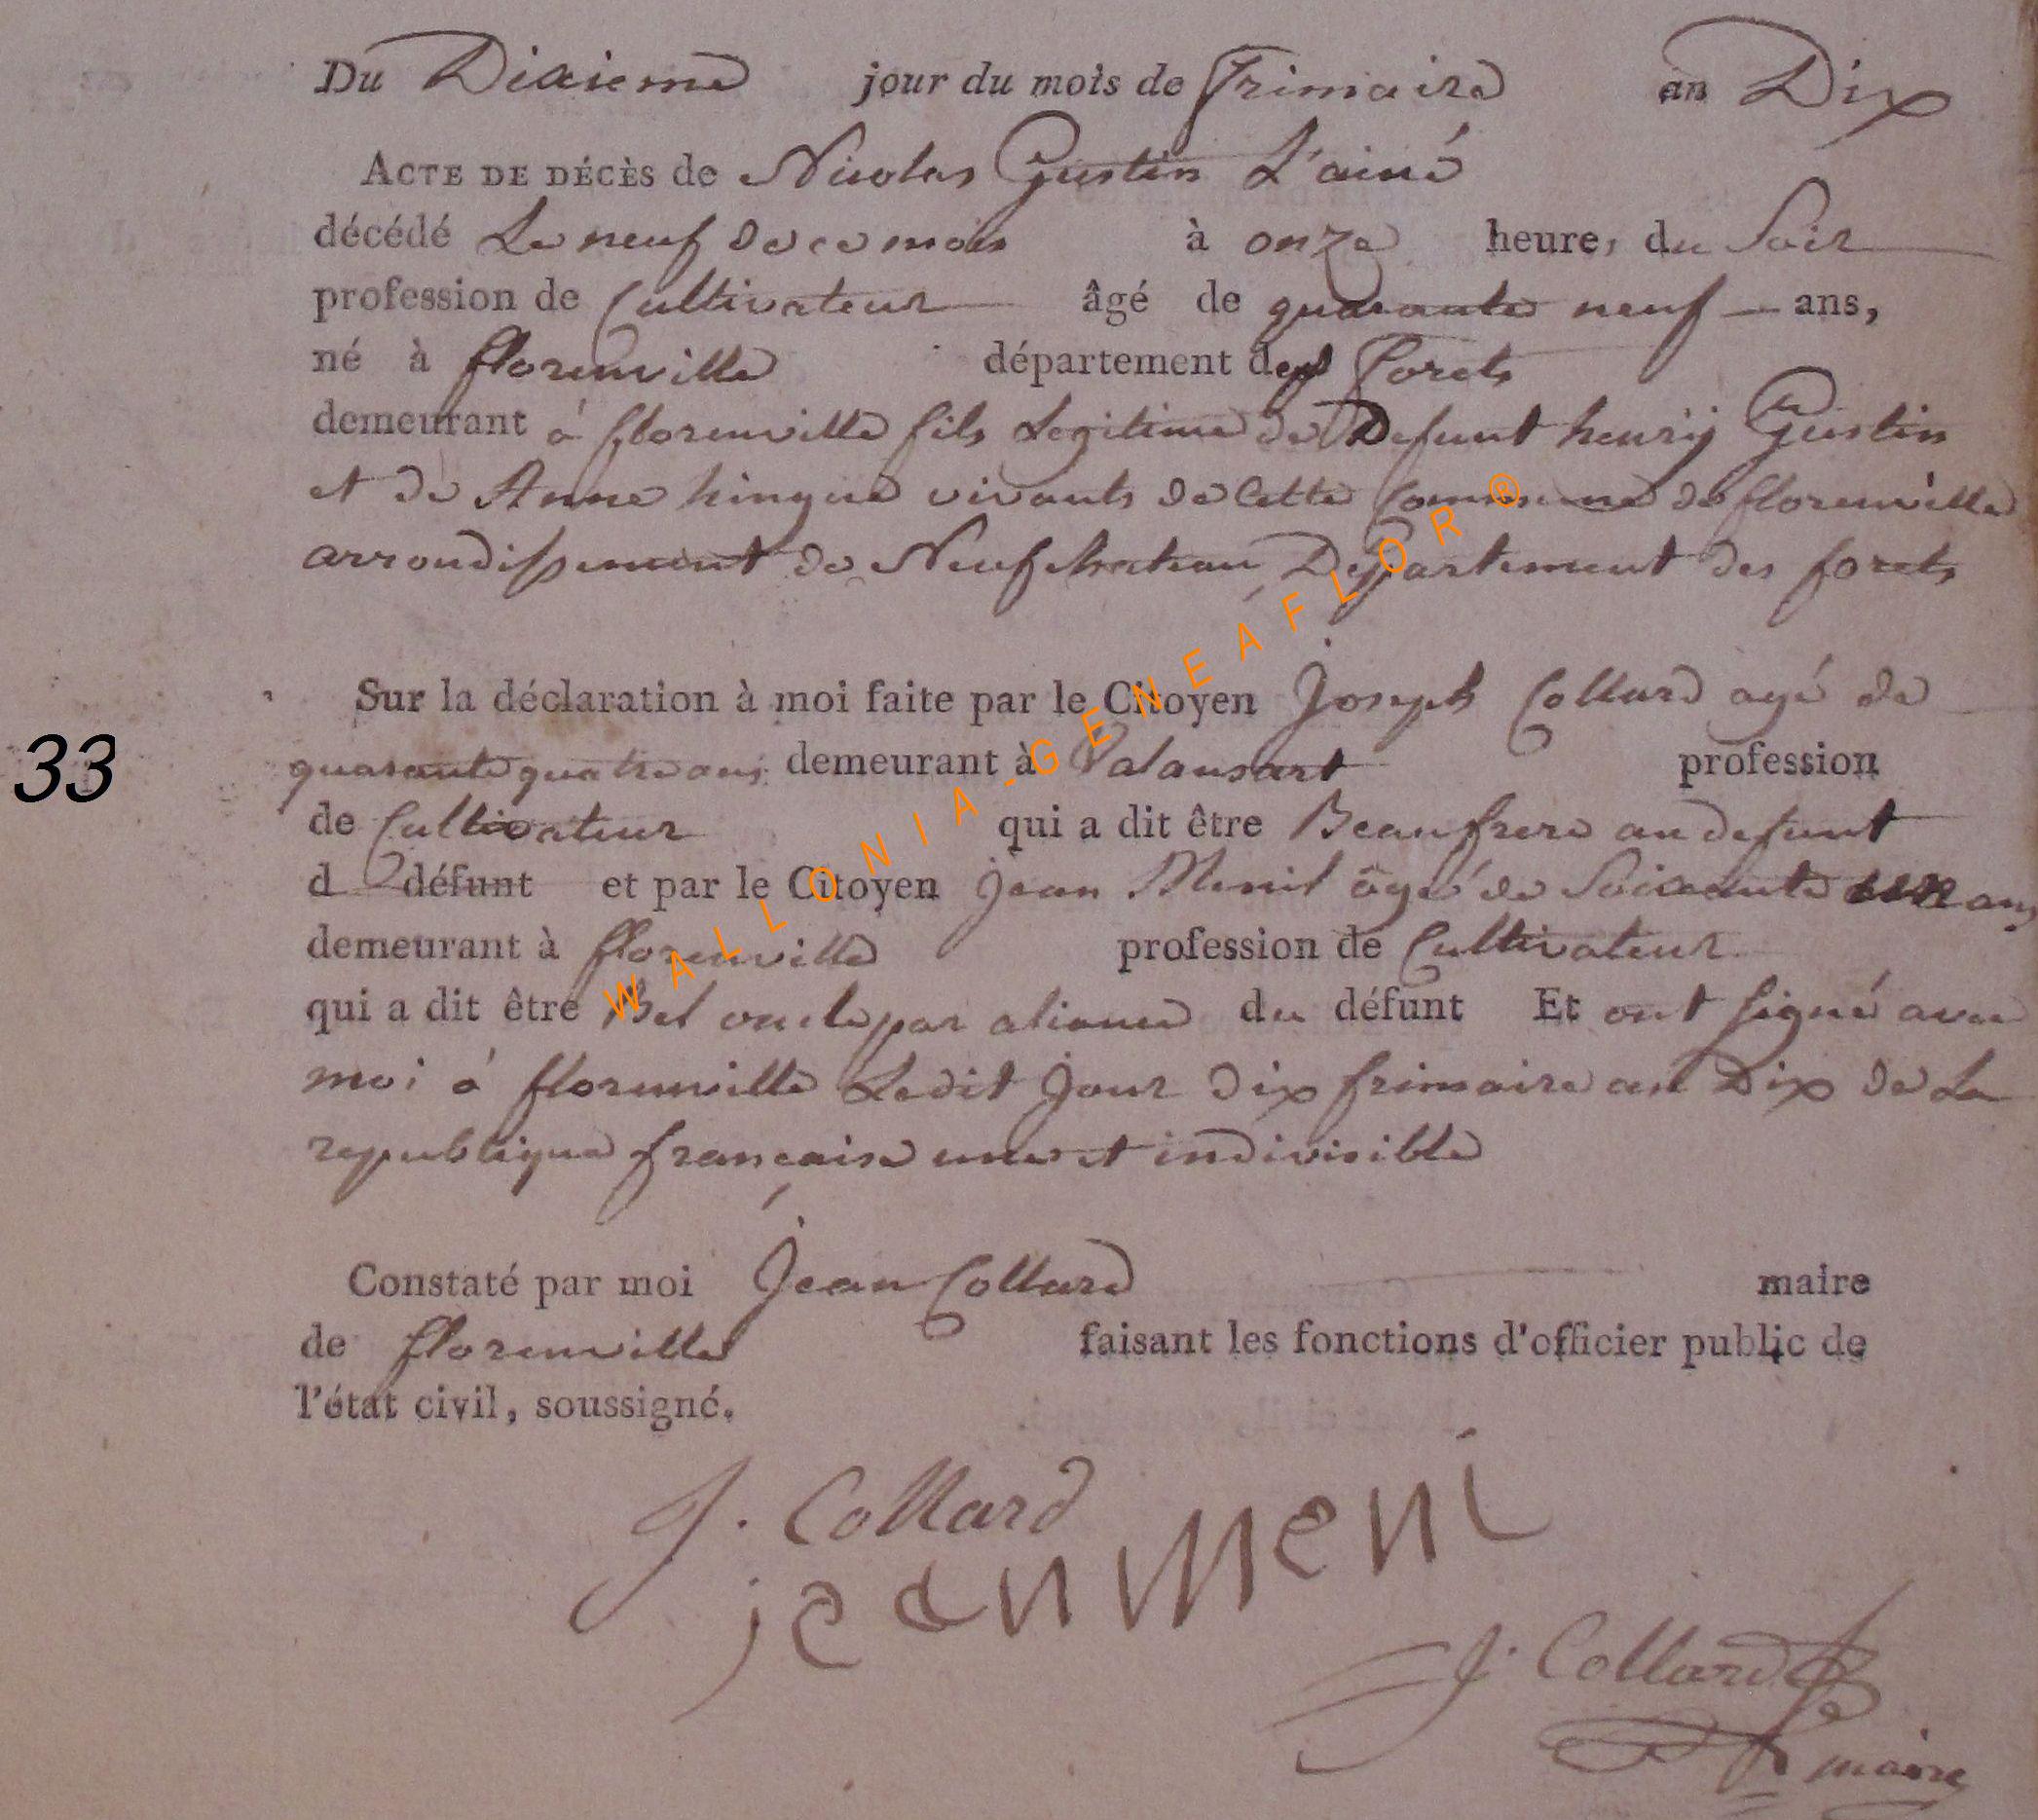 Du Dixieme jour du mois de Frimaire an Dix
ACTE DE DÉCÈS de Nicolas Gustin L'ainé
décédé Le neuf de ce mois à onze heures du Soir
profession de Cultivateur âgé de quarante neuf ans,
né à florenville département des Forets
demeurant à florenville fils Legitime de Defunt henrÿ Gustin
et de Anne hinque vivants de Cette Commune de florenville
arrondissement de Neufchateau Departement des forets
Sur la déclaration à moi faite par le Citoyen Joseph Collard agé de
33
quarante quatre ans demeurant à Valansart profession
de Cultivateur qui a dit être Beaufrere au defunt
d défunt et par le Citoyen Jean Menil agé de Soixante ans
demeurant à florenville profession de Cultivateur
qui a dit être Bel oncle par aliance du défunt Et ont signé avec
moi à florenville Ledit Jour Dix frimaire an Dix de La
republique française une et indivisible
Constaté par moi Jean Collard maire
de florenville faisant les fonctions d'officier public de
l'état civil, soussigné.
J. Collard
jean meni
J. Collard
maire
WALLONIA-GENEAFLOR®